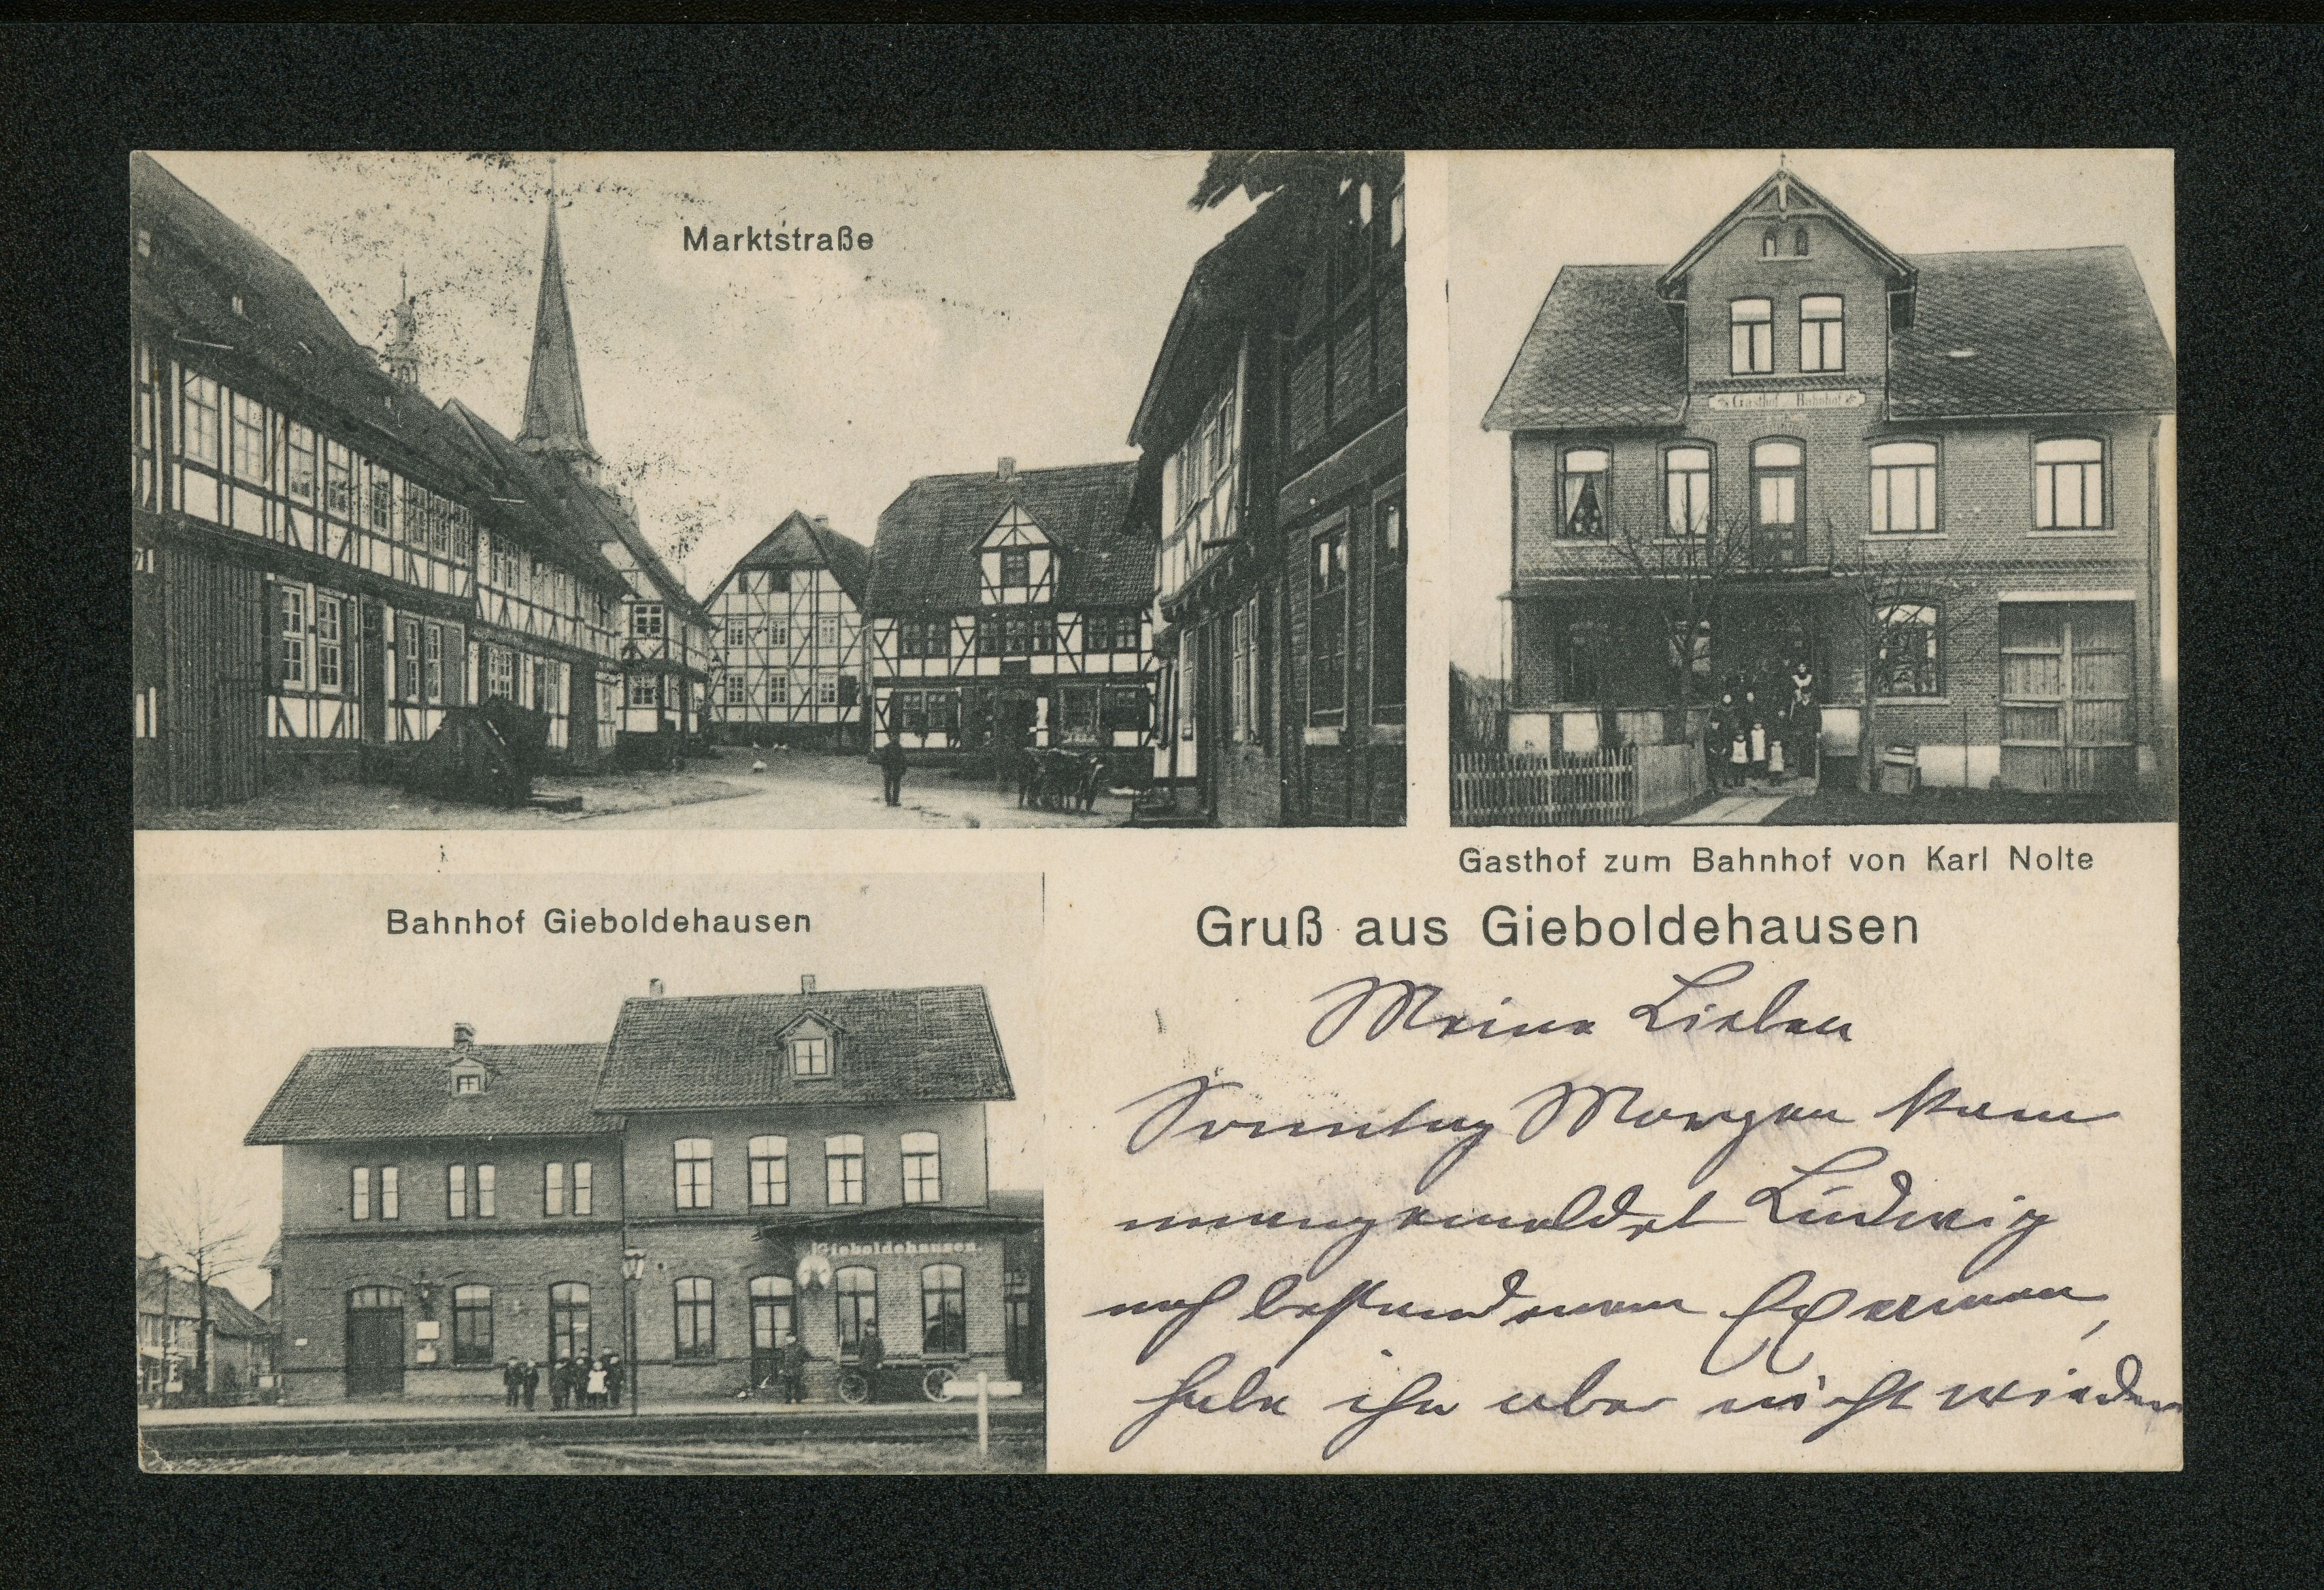 Marktstraße
Gasthof zum Bahnhof
Gasthof zum Bahnhof von Karl Nolte
Bahnhof Gieboldehausen
Gieboldehausen.
Gruß aus Gieboldehausen
Meine Lieben
Sonntag Morgen kam
unangemeldet Ludwig
nach bestandenem Examen,
habe ihn aber nicht wieder